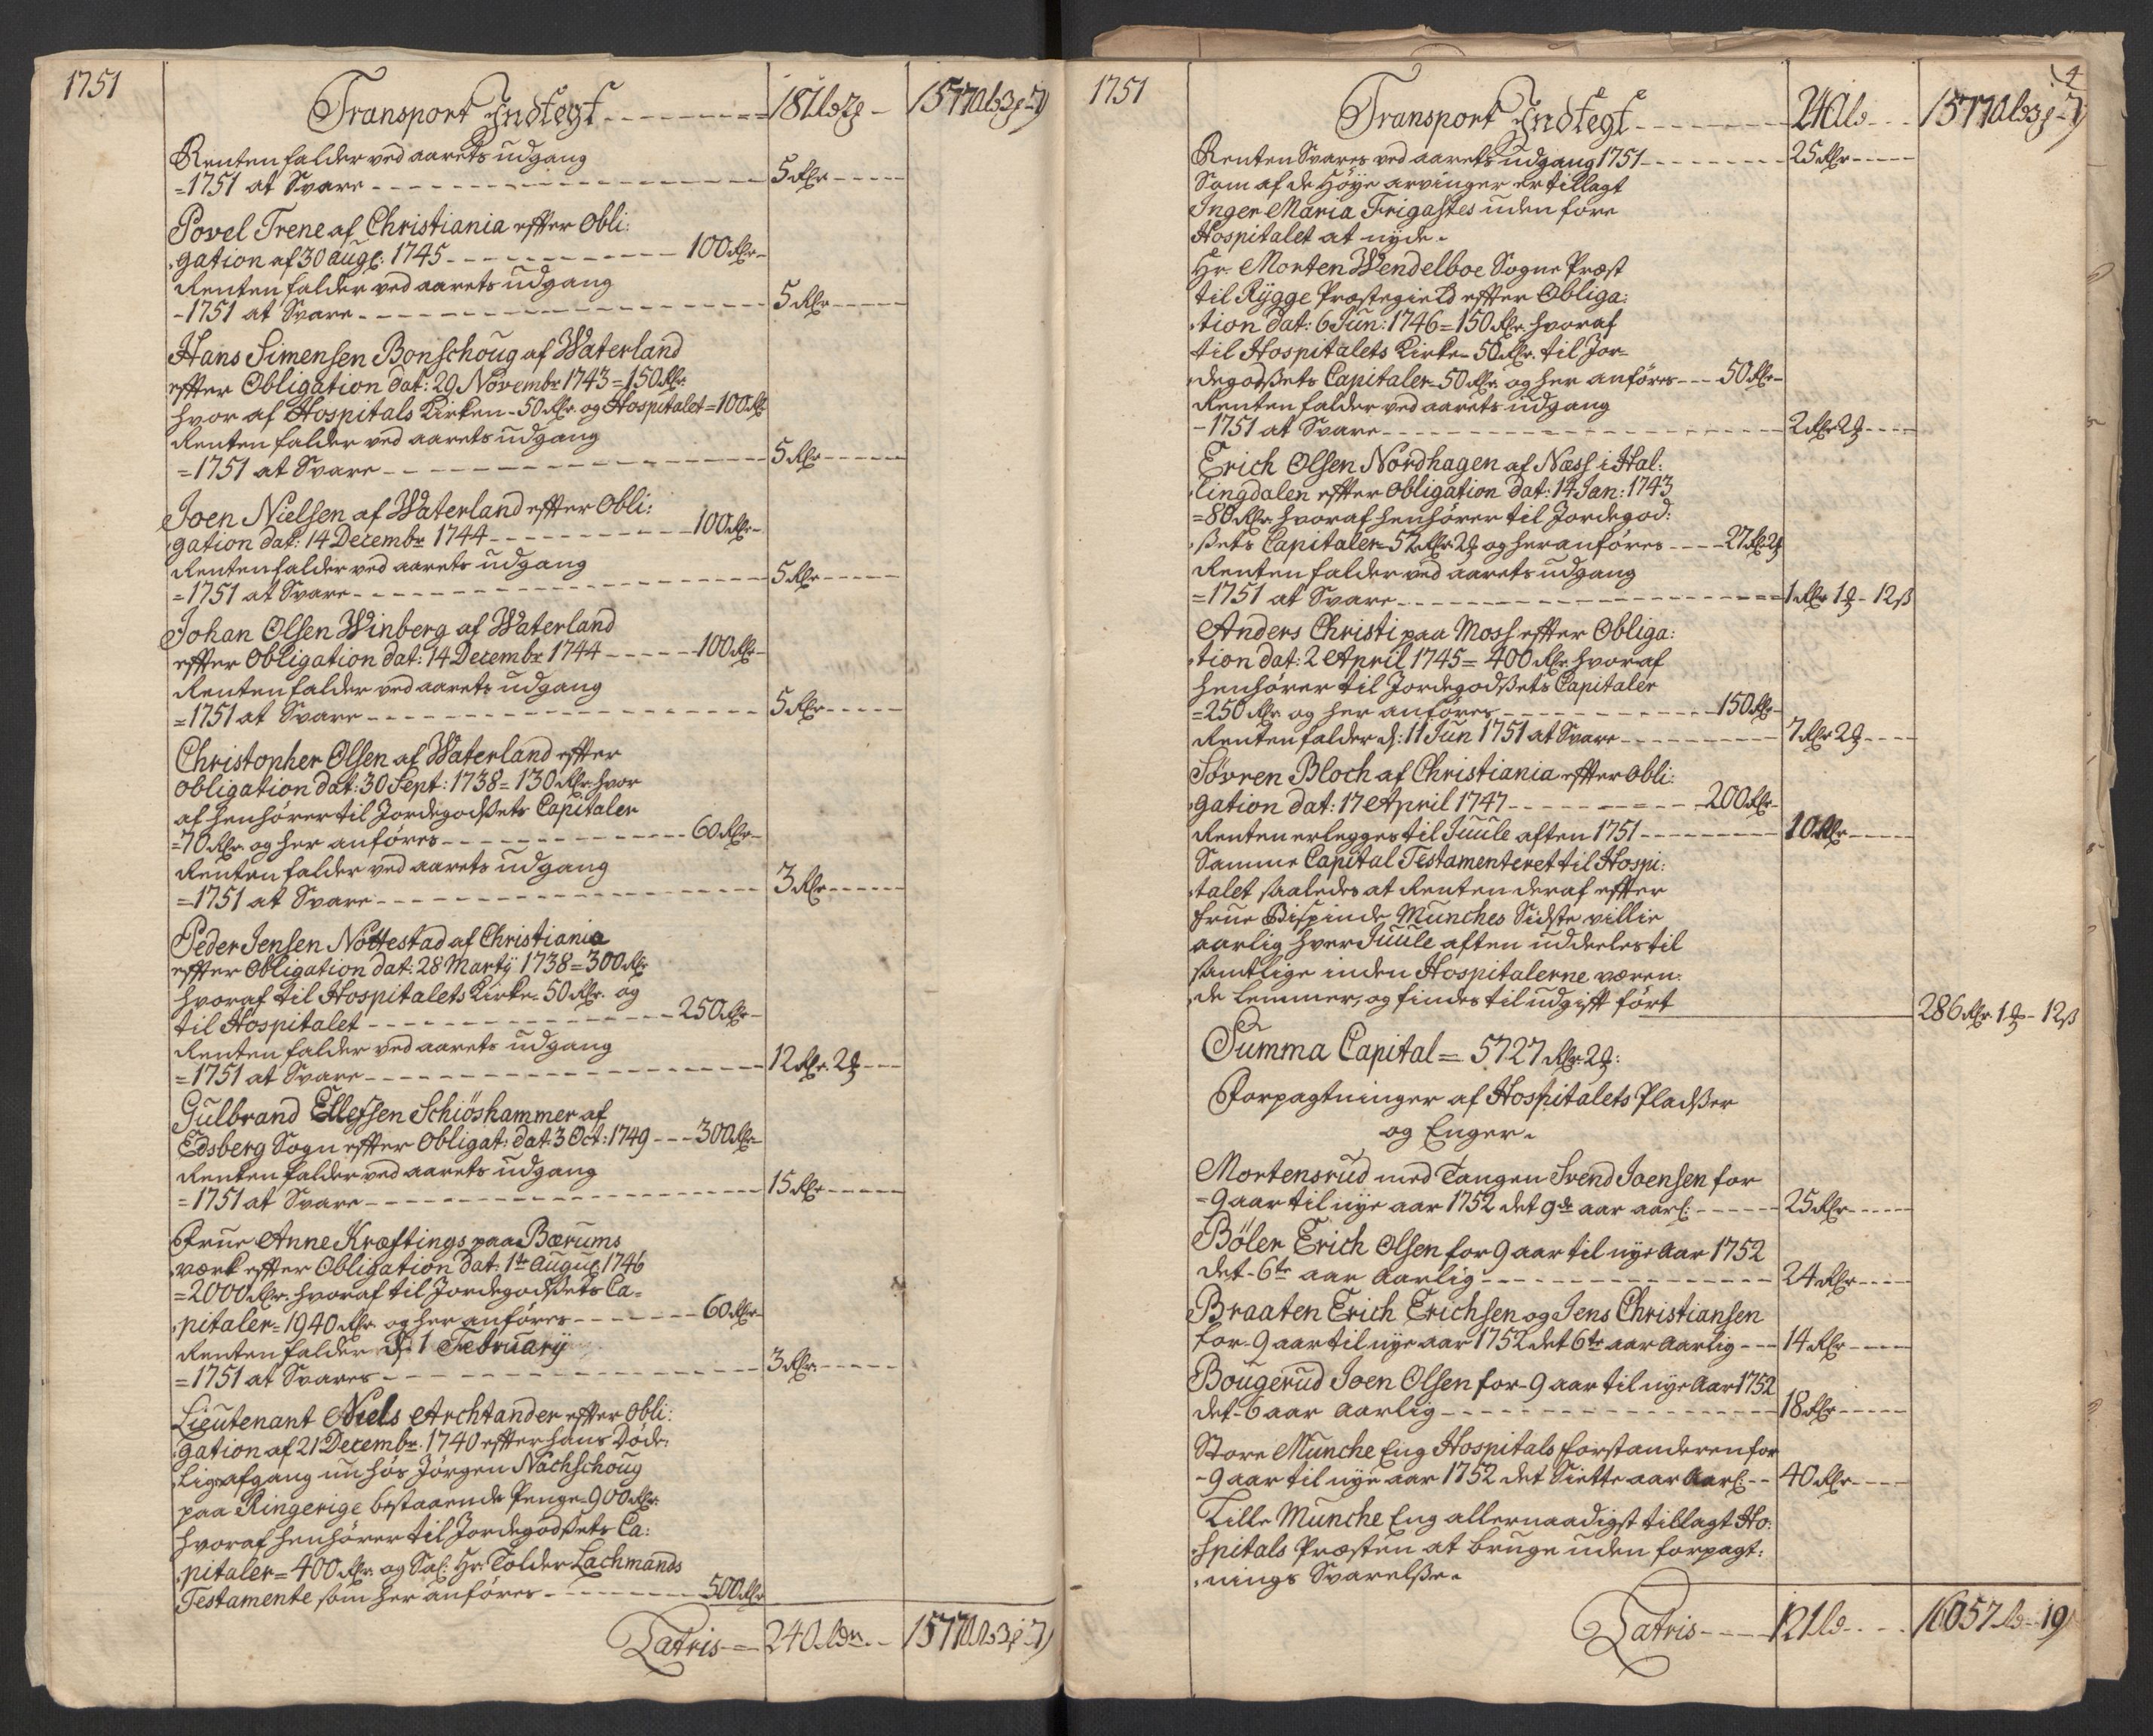 1751
Transport Indtegt
Renten falder ved aarets udgang
=1751 at Svare 5 Rdlr
Povel Trene af Christiania effter Obli:
gation af 30 Augl: 1745 100 Rdlr
Renten falder ved aarets udgang
-1751 at Svare 5 Rdlr
Hans Simensen Bonschoug af Waterland
effter Obligation dat: 29 Novembr 1743=150 Rdlr
hvor af Hospitals Kirken-50 Rdlr. og Hospitalet=100 Rdlr
Renten falder ved aarets udgang
=1751 at Svare 5 Rdlr
Joen Nielsen af Waterland effter Obli:
gation dat: 14 Decembr 1744 100 Rdlr
Renten falder ved aarets udgang
=1751 at Svare 5 Rdlr
Johan Olsen Winberg af Waterland
effter Obligation dat: 14 Decembr 1744 100 Rdlr
Renten falder ved aarets udgang
=1751 at Svare 5 Rdlr
Christopher Olsen af Waterland effter
obligation dat: 30 Sept: 1738=130 Rdlr hvor
af henhører til Jordegodssets Capitaler
=70 Rdlr. og her anføres 60 Rdlr
Renten falder ved aarets udgang
=1751 at Svare 3 Rdlr
Peder Jensen Nottestad af Christiania
effter Obligation dat: 28 Martij 1738=300 Rdlr
hvoraf til Hospitalets Kirke-50 Rdlr. og
til Hospitalet 250 Rdlr
Renten falder ved aarets udgang
=1751 at Svare 12 Rdlr. 2
Gulbrand Ellefsen Schiöshammer af
Edsberg Sogn effter Obligat: dat: 3 Oct: 1749 300 Rdlr
Renten falder ved aarets udgang
=1751 at Svare 15 Rdlr
Frue Anne Kræftings paa Bærums
værk effter Obligation dat: 1te Augusl 1746
=2000 Rdlr. hvoraf til Jordegodssets Ca-
pitaler=1940 Rdlr og her anføres 60 Rdlr
Renten falder d. 1 February
=1751 at Svares 3 Rdlr.
Lieutenant Niels Archtander effter Obli:
gation af 21 Decembr. 1740 effter hans Døde-
lig afgang nu hos Jörgen Nachschoug
paa Ringerige bestaaende Penge=900 Rdlr.
hvoraf henhører til Jordegodssets Ca:
pitaler=400 Rdlr. og Sal: Hr. Tolder Lachmands
Testamente som her anføres 500 Rdlr
Latris
1751
4
Transport Indtegt
Renten Svares ved aarets udgang 1751 25 Rdlr
Som af de Høye arvinger er tillagt
Inger Maria Frigastes uden fore
Hospitalet at nyde.
Hr. Morten Wendelboe Sogne Præst
til Rygge Præstegield effter Obliga:
tion dat: 6 Jun: 1746=150 Rdlr. hvoraf
til Hospitalets Kirke-50 Rdlr. til Jor-
degodssets Capitaler-50 Rdlr og her anføres 50 Rdlr
Renten falder ved aarets udgang
-1751 at Svare 2 Rdlr 2
Erich Olsen Nordhagen af Næss i Hal:
lingdalen effter Obligation dat: 14 Jan: 1743
=80 Rdlr. hvoraf henhører til Jordegod:
ssets Capitaler=52 Rdlr. 2 og her anføres 27 Rdlr 2
Renten falder ved aarets udgang
=1751 at Svare 1 Rdlr 1 - 12 ß
Anders Christi paa Moss effter Obliga:
tion dat: 2 April 1745=400 Rdlr hvoraf
henhører til Jordegodssets Capitaler
=250 Rdlr og her anføres 150 Rdlr
Renten falder d: 11 Jun 1751 at Svare 7 Rdlr 2
Søvren Bloch af Christiania effter Obli:
gation dat: 17 April 1747 200 Rdlr
Renten erlegges til Juule aften 1751 10 Rdlr
Samme Capital Testamenteret til Hospi:
talet saaledes at Renten deraf effter
Frue Bispinde Munches Sidste villie
aarlig hver Juule aften uddeeles til
samtlige inden Hospitalerne væren:
de Lemmer, og findes til udgifft ført
286 Rdlr 1 - 12 ß
Summa Capital= 5727 Rdlr. 2
Forpagtninger af Hospitalets Pladsser
og Enger.
Mortensrud med Tangen Svend Joensen for
-9 aar til nye aar 1752 det 9de aar aarl: 25 Rdlr
Böler Erich Olsen for 9 aar til nye Aar 1752
det-6te aar Aarlig 24 Rdlr
Braaten Erich Erichsen og Jens Christiansen
for-9 aar til nye aar 1752 det 6te aar Aarlig 14 Rdlr
Bougerud Joen Olsen for-9 aar til nye Aar 1752
det-6 aar Aarlig 18 Rdlr
Store Munche Eng Hospitals forstanderen for
-9 aar til nye aar 1752 det Siette aar Aarl: 40 Rdlr
Lille Munche Eng allernaadigst tillagt Ho:
spitals Præsten at bruge uden forpagt:
nings Svarelsse.
Latris